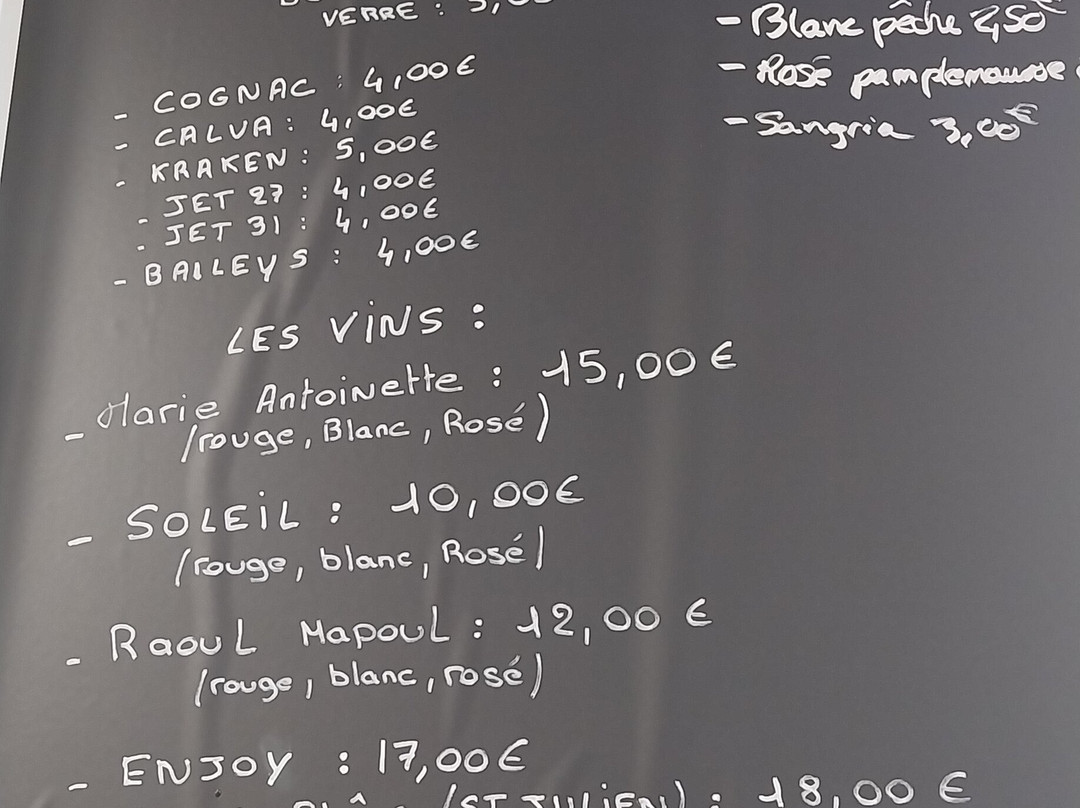 VERRE :
- COGNAC : 4,00€
- CALVA : 4,00€
- KRAKEN : 5,00€
- JET 27 : 4,00€
- JET 31 : 4,00€
- BAILEYS : 4,00€
LES VINS :
- Marie Antoinette : 15,00 €
(rouge, Blanc, Rosé)
- SOLEIL : 10,00€
(rouge, blanc, Rosé)
- Raoul Mapoul : 12,00 €
(rouge, blanc, rosé)
- ENJOY : 17,00€
(ST JULIEN) : 18,00 €
- Blanc pêche 2,50€
- Rosé pamplemousse
- Sangria 3,00€